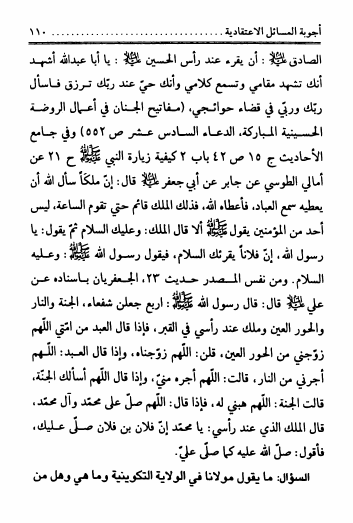 أجوبة المسائل الاعتقادية ........................................ ١١٠
الصادق ﷺ : أن يقرء عند رأس الحسين ﷺ : يا أبا عبدالله أشهد
أنك تشهد مقامي وتسمع كلامي وأنك حيّ عند ربّك ترزق فاسأل
ربّك وربّي في قضاء حوائجي، (مفاتيح الجنان في أعمال الروضة
الحسينية المباركة، الدعاء السادس عشر ص ٥٥٢) وفي جامع
الأحاديث ج ١٥ ص ٤٢ باب ٢ كيفية زيارة النبي ﷺ ح ٢١ عن
أمالي الطوسي عن جابر عن أبي جعفر ﷺ قال: إن ملكاً سأل الله أن
يعطيه سمع العباد، فأعطاه الله، فذلك الملك قائم حتي تقوم الساعة، ليس
أحد من المؤمنين يقول ﷺ ألا قال الملك: وعليك السلام ثمّ يقول: يا
رسول الله، إن فلاناً يقرئك السلام، فيقول رسول الله ﷺ : وعليه
السلام. ومن نفس المصدر حديث ٢٣، الجعفريان باسناده عن
علي ﷺ قال: قال رسول الله ﷺ : اربع جعلن شفعاء، الجنة والنار
والحور العين وملك عند رأسي في القبر، فإذا قال العبد من امّتي اللّهم
زوّجني من الحور العين، قلن: اللّهم زوّجناه، وإذا قال العبد: اللّهم
أجرني من النار، قالت: اللّهم أجره منيّ، وإذا قال اللّهم أسألك الجنّة،
قالت الجنة: اللّهم هبني له، فإذا قال: اللّهم صلّ على محمّد وآل محمّد،
قال الملك الذي عند رأسي: يا محمّد إنّ فلان بن فلان صلّى عليك،
فأقول: صلّ الله عليه كما صلّى عليّ.
السؤال: ما يقول مولانا في الولاية التكوينية وما هي وهل من